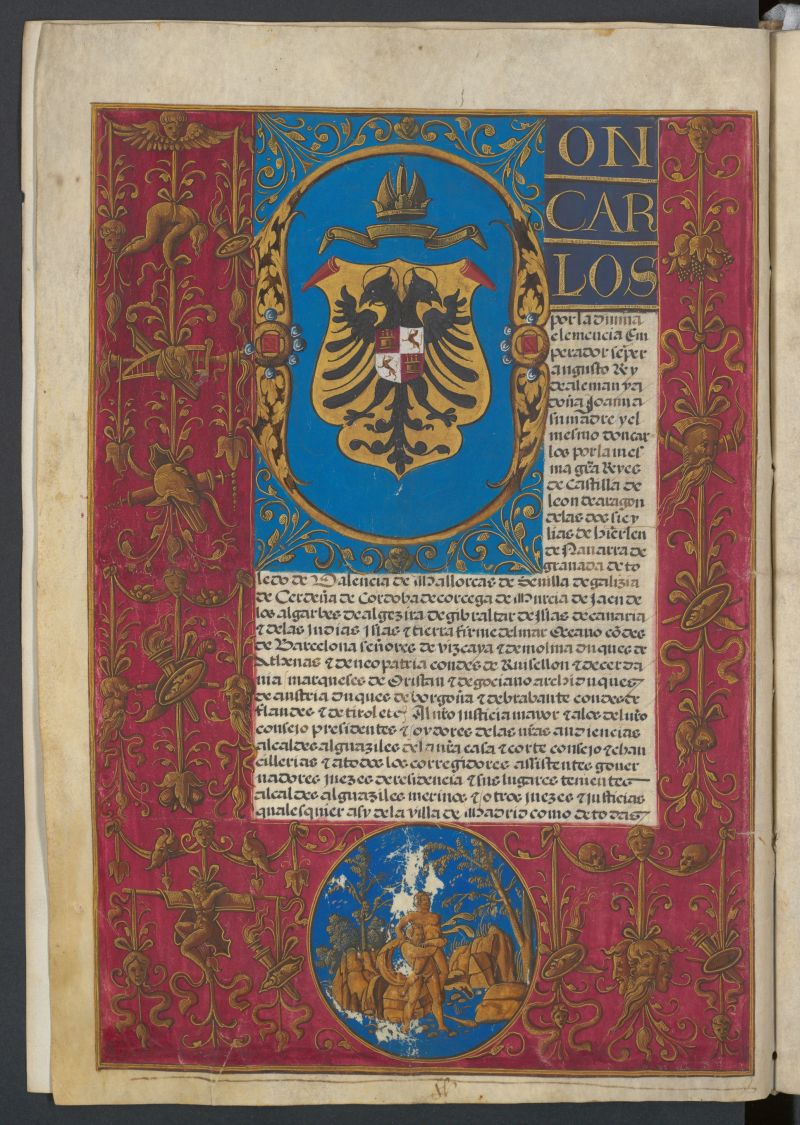 ON
CAR
LOS
por la diuina
clemencia Em
perador sẽper
augusto Rey
de alemanya
doña Joanna
su madre y el
mesmo don car
los por la mes
ma gr̃a Reyes
de Castilla de
leon de aragon
delas dos sicy
lias de hierlen
de Nauarra de
granada de to
ledo de Valencia de Mallorcas de Seuilla de galizia
de Cerdeña de Cordoba de corcega de Murcia de Jaen de
los algarbes de algezira de gibraltar de Islas de canaria
⁊ delas Indias Islas ⁊ tierra firme del mar Oceano cõdes
de Barcelona señores de vizcaya ⁊ de molina duques de
Athenas ⁊ de neopatria condes de Ruisellon ⁊ de cerda
nia marqueses de Oristan ⁊ de gociano archiduques
de austria duques de borgoña ⁊ de brabante condes de
flandes ⁊ de tirol etc̃ Al nr̃o justicia mayor ⁊ alos del nr̃o
consejo presidentes ⁊ oydores delas nr̃as audiencias
alcaldes alguaziles dela nr̃a casa ⁊ corte consejo ⁊ chan
cillerias ⁊ a todos los corregidores assistentes gouer
nadores juezes de residencia ⁊ sus lugares tenientes
alcaldes alguaziles merinos ⁊ otros juezes ⁊ justicias
qualesquier asy dela villa de Madrid como de todas